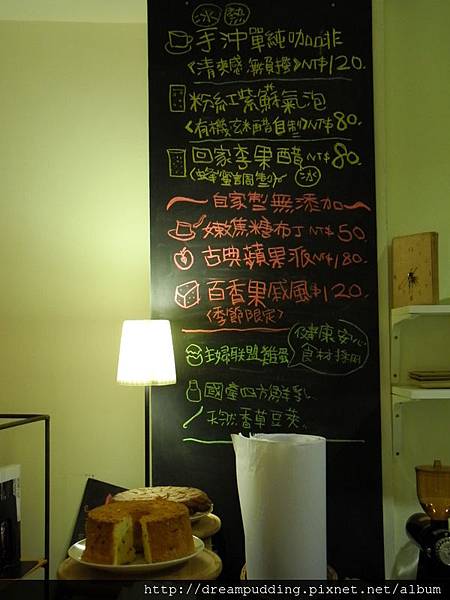 冰 熱
手沖單純咖啡
《清爽感 無負擔》NT$120.
粉紅紫蘇氣泡
《有機玄米醋自製》NT$80.
回家李果醋 NT$80.
(蜂蜜調製) 冰
自家製無添加
嫩焦糖布丁 NT$50.
古典蘋果派 NT$180.
百香果戚風 $120.
《季節限定》
主婦聯盟雞蛋
健康安心
食材採用
國產四方鮮乳
天然香草豆莢
http://dreampudding.pixnet.net/album